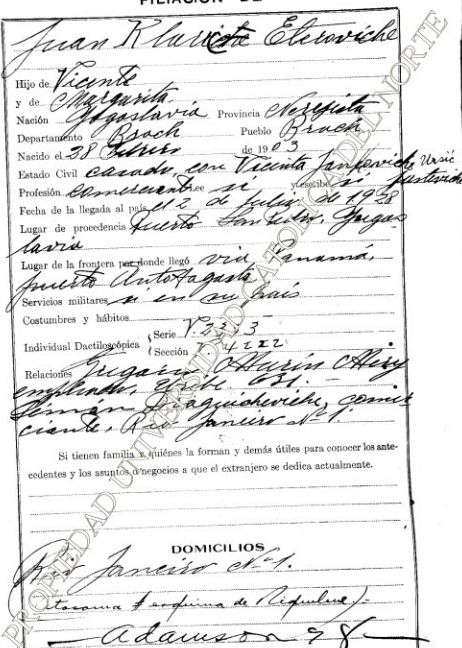 FILIACIÓN DE
Juan Klaric Eterovich
Hijo de Vicente
y de Margarita
Nación Yogoslavia Provincia
Departamento Brach Pueblo Brach
Nacido el 28 Febrero de 1903
Estado Civil casado con Vicenta Jankoviche Ursic
Profesión comerciante Lee si y escribe si
Fecha de la llegada al país el 2 de Julio de 1928
Lugar de procedencia puerto Yugos
lavia
Lugar de la frontera por donde llegó via Panamá,
puerto Antofagasta
Servicios militares si en su país
Costumbres y hábitos
Individual Dactiloscópica Serie V.2243
Sección V 4222
Relaciones
empleado, 631.
comer
ciante, Rio Janeiro Nº 1.
Si tienen familia y quiénes la forman y demás útiles para conocer los ante-
cedentes y los asuntos o negocios a que el extranjero se dedica actualmente.
DOMICILIOS
Rio Janeiro Nº 1.
esquina de Riquelme
Adamson 98
PROPIEDAD UNIVERSIDAD CATOLICA DEL NORTE